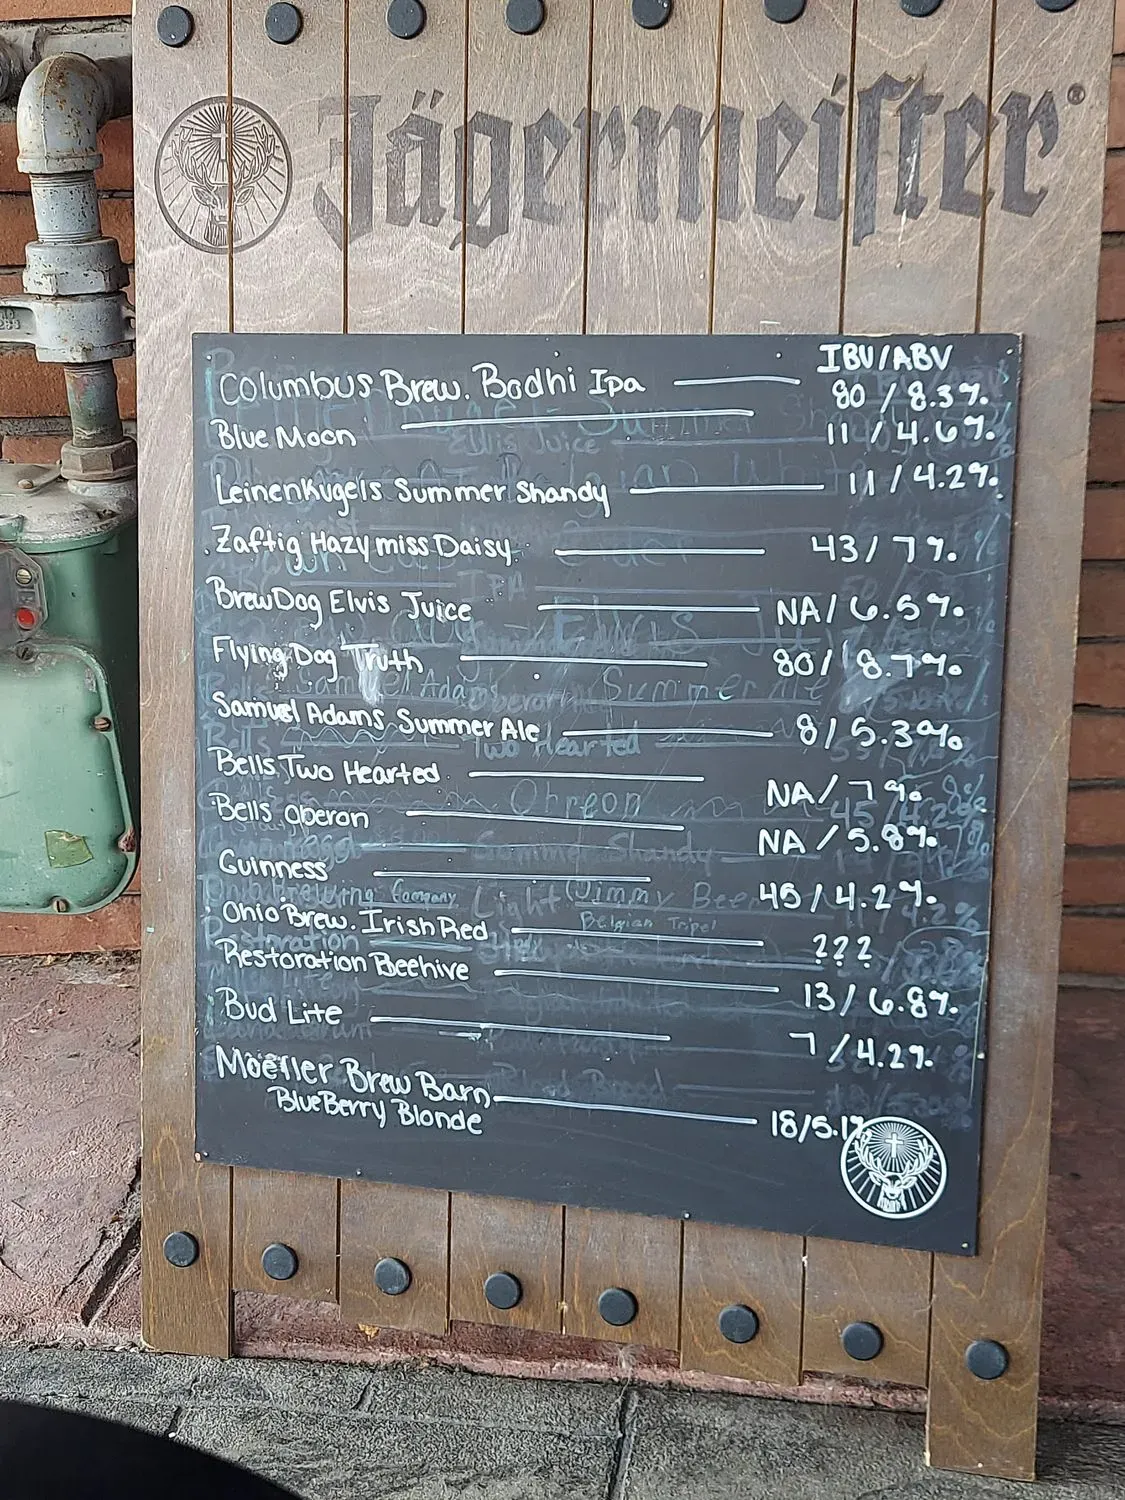 Jägermeister®
IBU/ABV
Columbus Brew. Bodhi Ipa 80 / 8.3%
Blue Moon 11 / 4.6%
Leinenkugels Summer Shandy 11 / 4.2%
Zaftig Hazy miss Daisy 43 / 7%
BrewDog Elvis Juice NA / 6.5%
Flying Dog Truth 80 / 8.7%
Samuel Adams Summer Ale 8 / 5.3%
Bells Two Hearted NA / 7%
Bells Oberon NA / 5.8%
Guinness 45 / 4.2%
Ohio Brew. Irish Red ???
Restoration Beehive 13 / 6.8%
Bud Lite 7 / 4.2%
Moeller Brew Barn
BlueBerry Blonde 18/5.1%